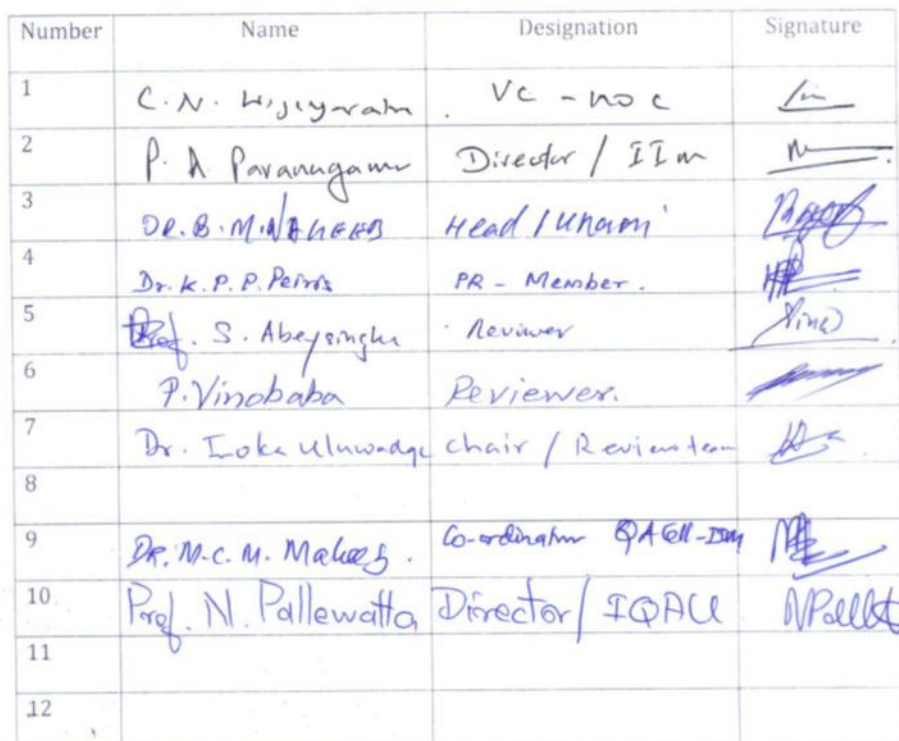 Number Name Designation Signature
1 C.N. Wijeyaratn VC - UOC
2 P. A Paranagama Director / IIM
3 DR. B. M. NAHEEB Head / Unani
4 Dr. K. P. P. Peiris PR - Member.
5 Prof. S. Abeysinghe Reviwer
6 P. Vinobaba Reviewer.
7 Dr. Iroka Uluwadge Chair / Review team
8
9 DR. M.C.M. Co-ordinator QA Cell-IIM
10 Prof. N. Pallewatta Director / IQAU NPalle
11
12